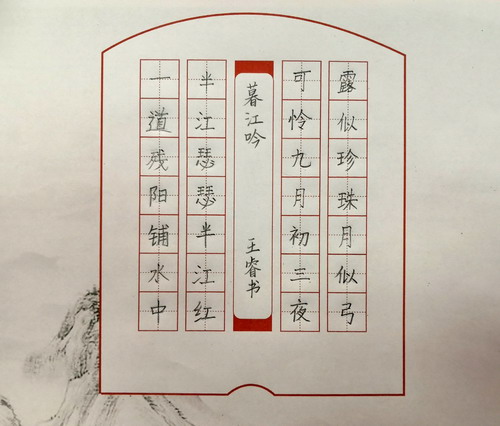 一道残阳铺水中
半江瑟瑟半江红
暮江吟
王睿书
可怜九月初三夜
露似珍珠月似弓